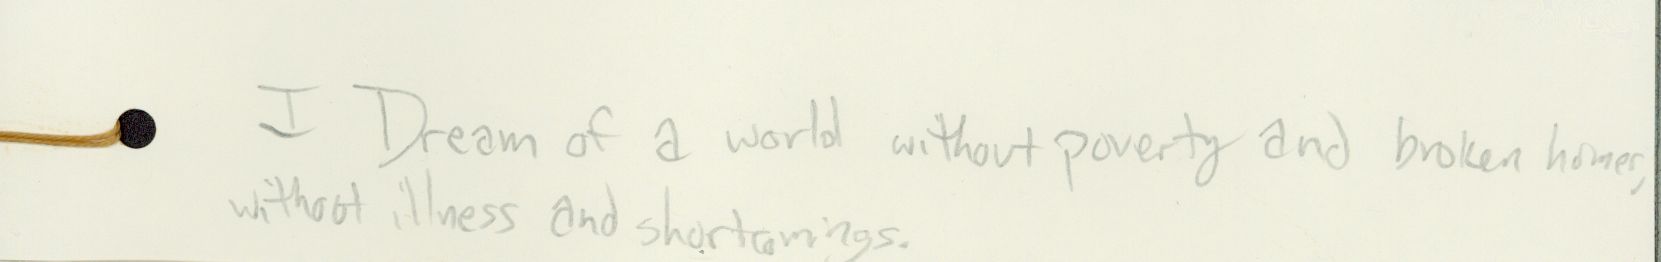 I Dream of a world without poverty and broken homes,
without illness and shortcomings.